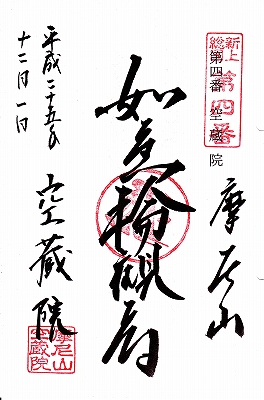 新上総
第四番
第四番 空蔵院
摩尼山
如意輪観音
空蔵院
平成二十五年
十二月一日
摩尼山
空蔵院